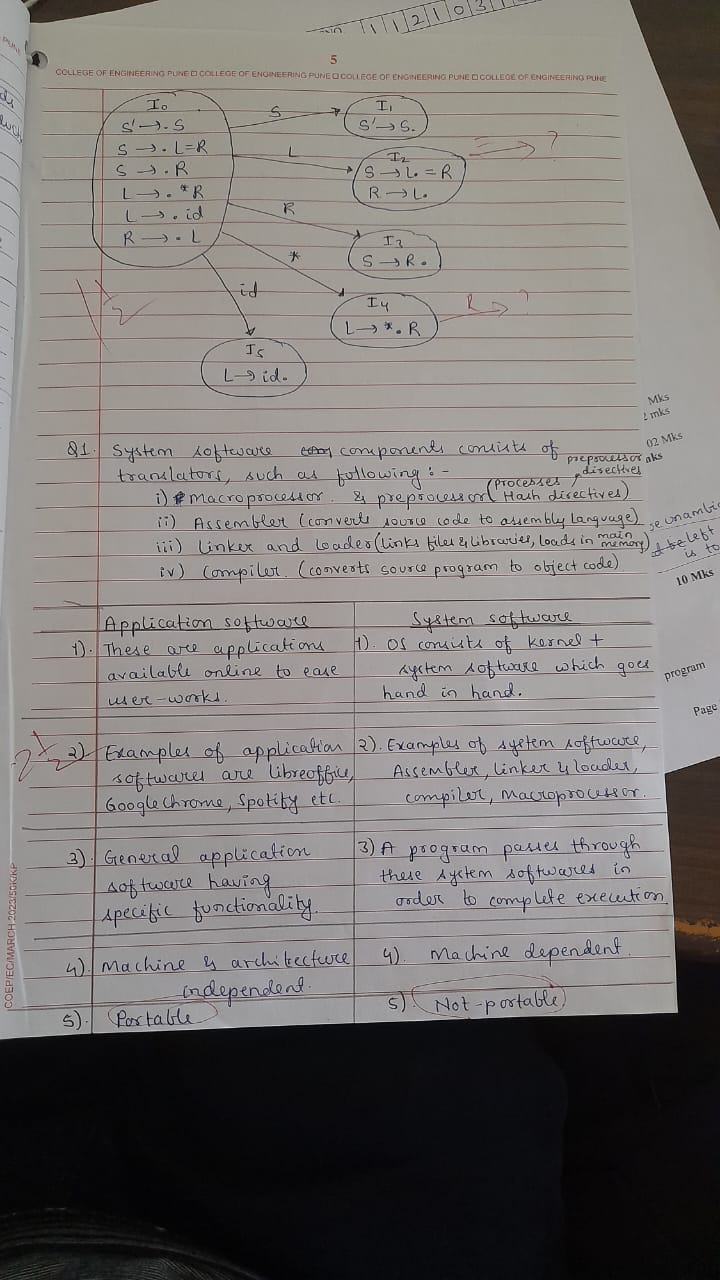 1 1 2 1 0 3
5
COLLEGE OF ENGINEERING PUNE □ COLLEGE OF ENGINEERING PUNE □ COLLEGE OF ENGINEERING PUNE □ COLLEGE OF ENGINEERING PUNE
I₀
S' → .S
S → .L=R
S → .R
L → .*R
L → .id
R → .L
S
I₁
S' → S.
L
I₂
S → L.=R
R → L.
?
R
I₃
S → R.
*
I₄
L → *.R
R
?
id
I₅
L → id.
Mks
2 mks
02 Mks
Q1. System software components consists of
translators, such as following :-
preprocessor
directives
i) Macroprocessor & preprocessor (Processes, Hash directives)
ii) Assembler (converts source code to assembly language)
iii) Linker and loader (links files & libraries, loads in main memory)
iv) Compiler. (converts source program to object code)
be left
is to
10 Mks
program
Page
Application software
System software
1). These are applications
available online to ease
user-works.
1). OS consists of kernel +
system software which goes
hand in hand.
2) Examples of application
softwares are libreoffice,
Google chrome, Spotify etc.
2). Examples of system software,
Assembler, linker & loader,
compiler, Macroprocessor.
3). General application
software having
specific functionality.
3) A program passes through
these system softwares in
order to complete execution.
4). Machine & architecture
independent.
4). Machine dependent.
5). Portable
5) Not-portable
COEP/EC/MARCH 2023/50K/KP